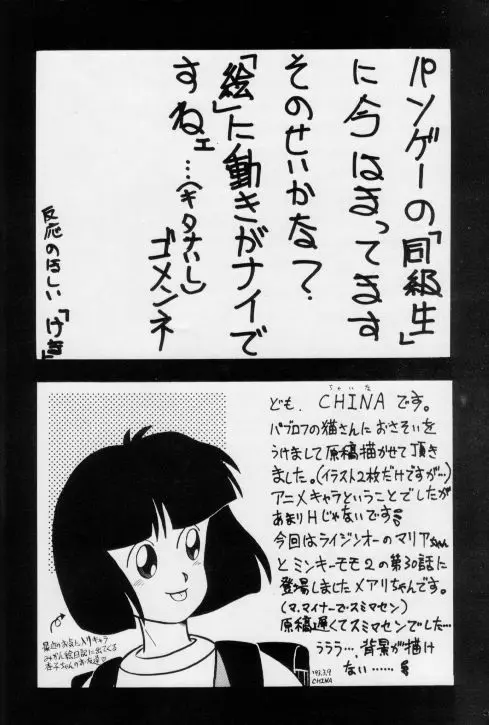 パソゲーの「同級生」
に今はまってます
そのせいかな?
「絵」に動きがナイで
すねェ…(キタナいし)
ゴメンネ
反応のほしい「げき」
ちゃいな
ども、CHINAです。
パブロフの猫さんにおさそいを
うけまして原稿描かせて頂き
ました。(イラスト2枚だけですが…)
アニメキャラということでしたが
あまりHじゃないです
今回はライジンオーのマリアちゃん
とミンキーモモ2の第30話に
登場しましたメアリちゃんです。
(マ、マイナーでスミマセン)
原稿遅くてスミマセンでした…
ううう…、背景が描け
ない……
最近のお気に入りキャラ
みかん絵日記に出てくる
杏子ちゃんのお友達♡
'93.3.9
CHINA